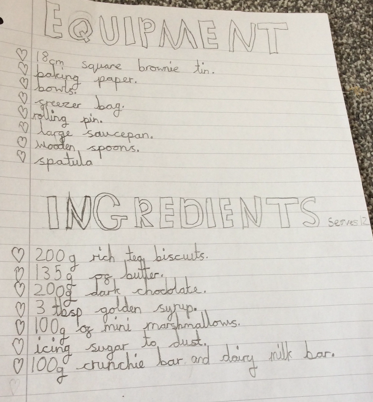 EQUIPMENT
18cm square brownie tin.
baking paper.
bowls.
freezer bag.
rolling pin.
large saucepan.
wooden spoons.
spatula
INGREDIENTS Serves 12
200g rich tea biscuits.
135g of butter.
200g dark chocolate.
3 tbsp golden syrup.
100g of mini marshmallows.
icing sugar to dust.
100g crunchie bar and dairy milk bar.